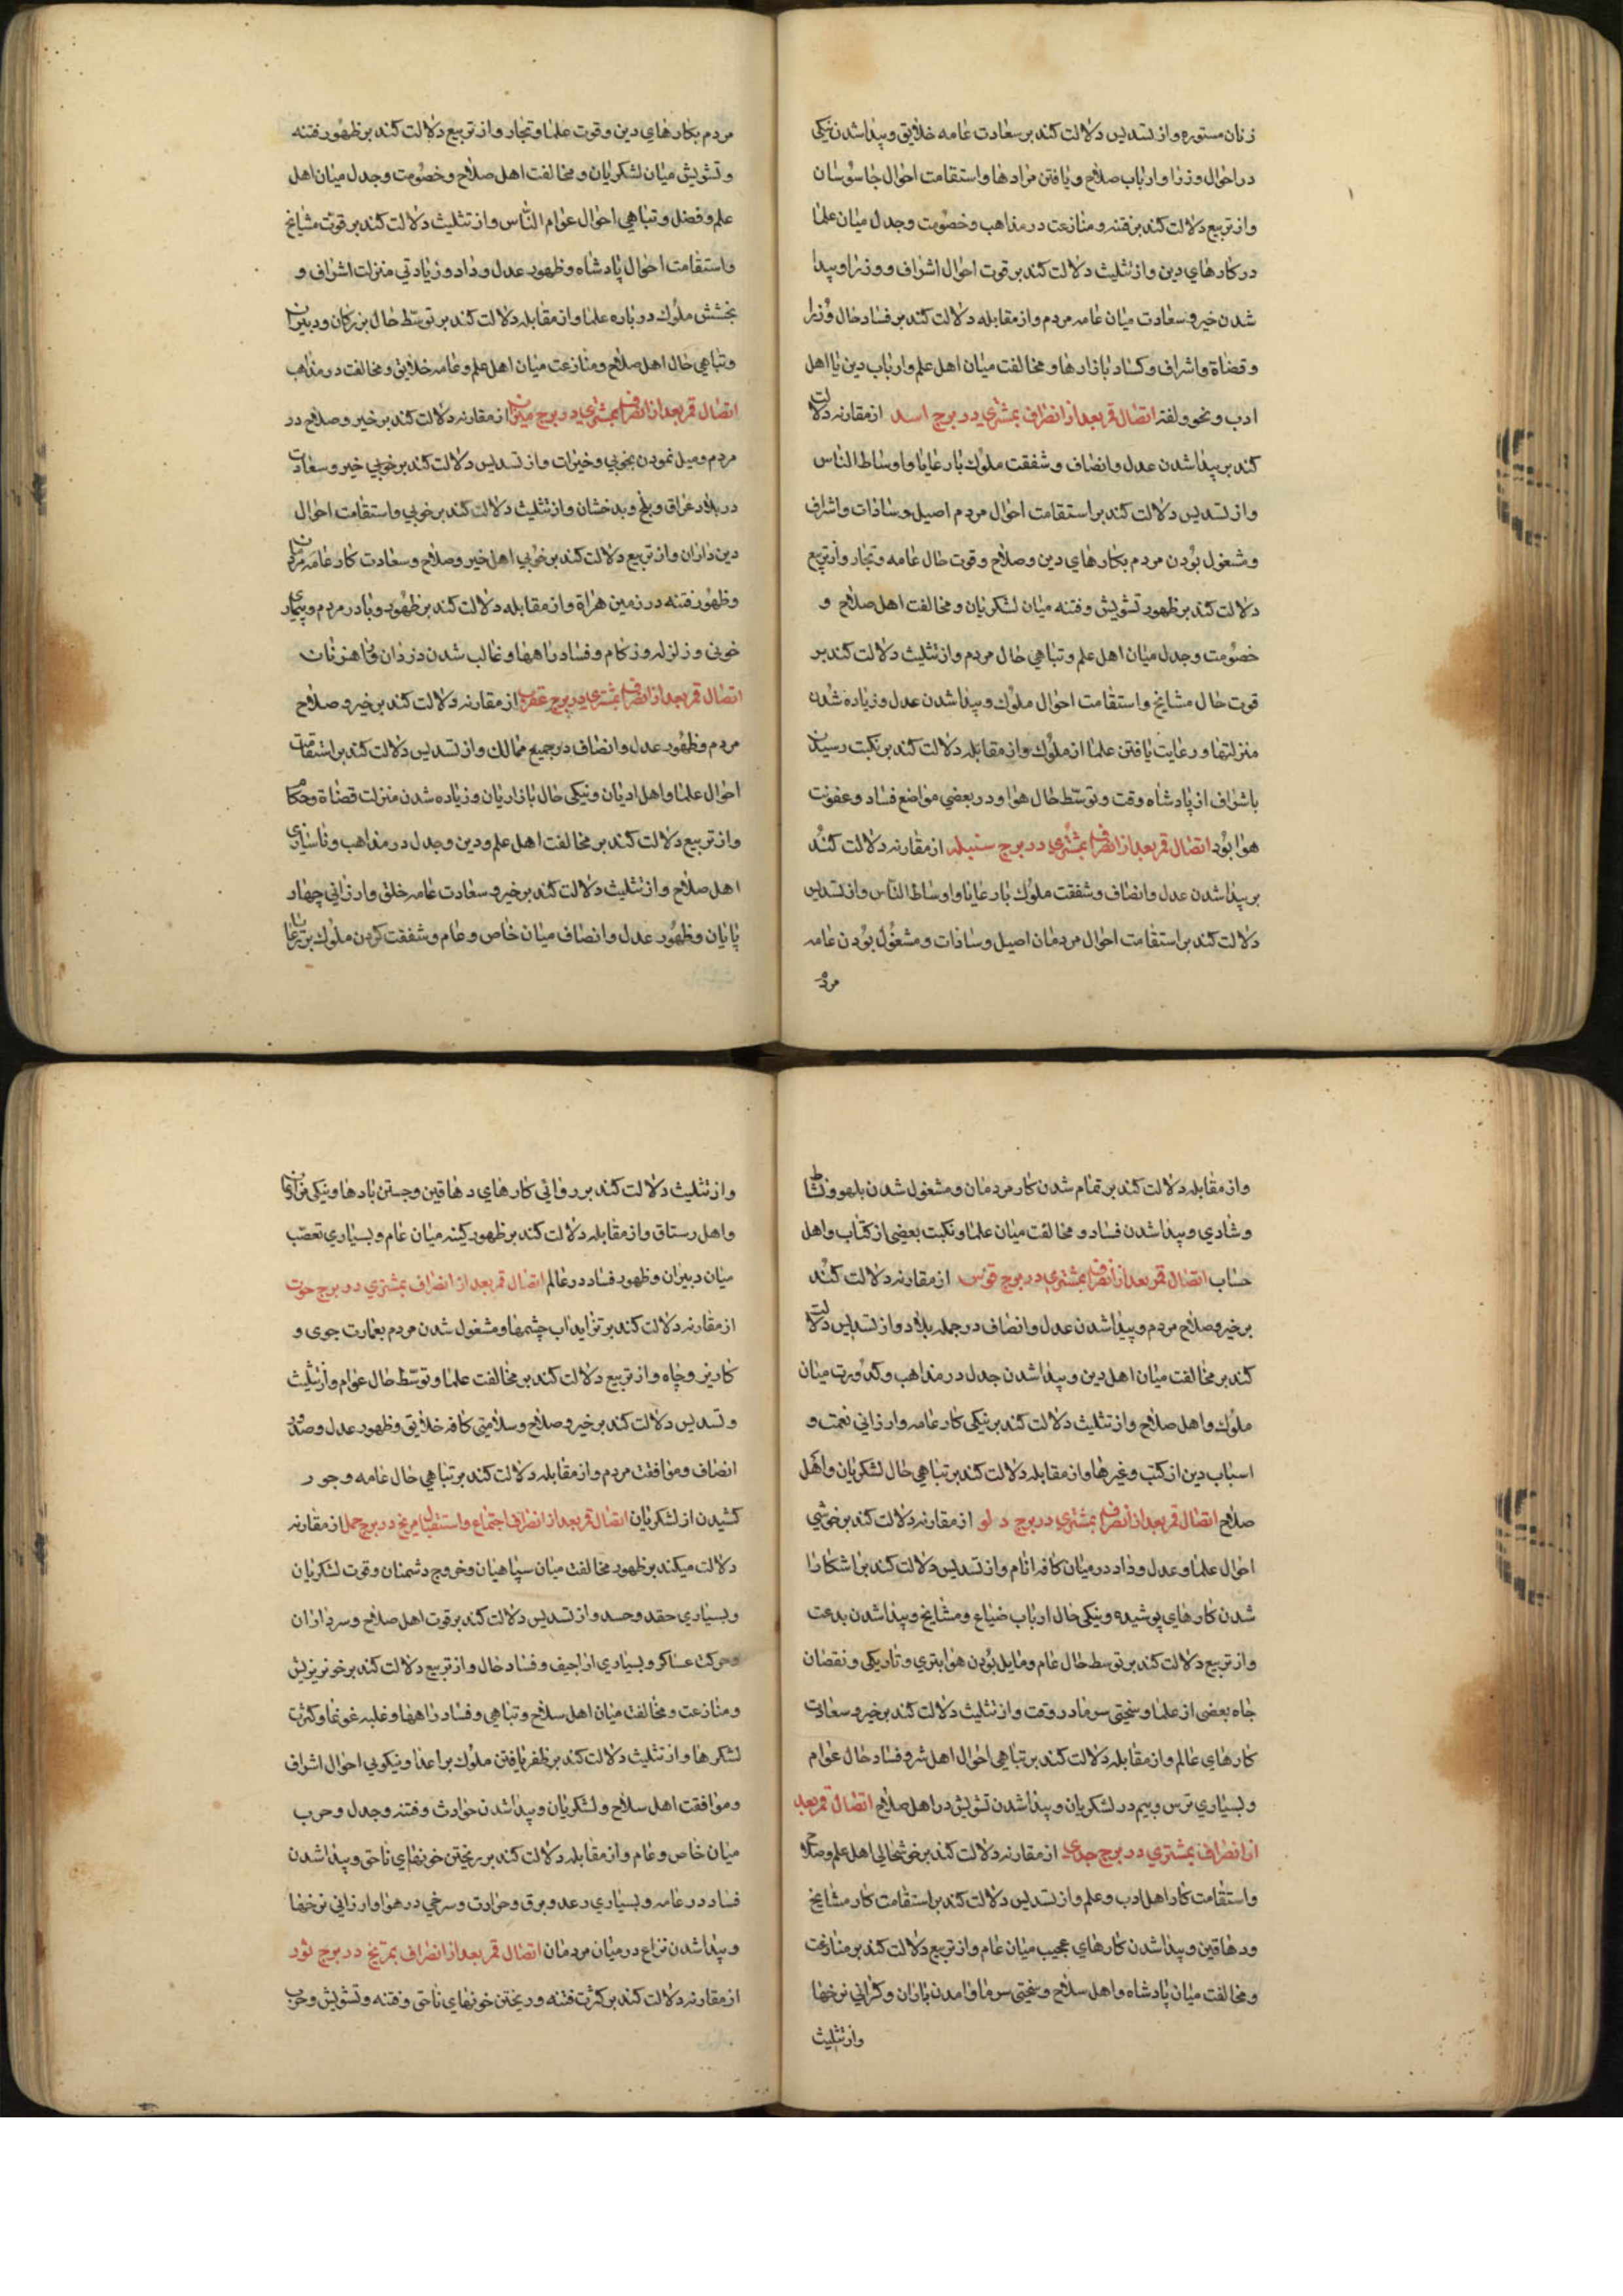 زنان مستوره و از تسدیس دلالت کند بر سعادت عامه خلایق و پیدا شدن نیکی
در احوال وزرا و ارباب صلاح و یافتن مرادها و استقامت احوال جاسوسان
و از تربیع دلالت کند بر فتنه و منازعت در مذاهب و خصومت و جدل میان علما
در کارهای دین و از تثلیث دلالت کند بر قوت احوال اشراف و وزرا و پیدا
شدن خیر و سعادت میان عامه مردم و از مقابله دلالت کند بر فساد حال وزرا
و قضاة و اشراف و کساد بازارها و مخالفت میان اهل علم و ارباب دین یا اهل
ادب و نحو و لغة اتصال قمر بعد از انصراف بمشتری در برج اسد از مقارنه دلالت
کند بر پیدا شدن عدل و انصاف و شفقت ملوک بار عایا و اوساط الناس
و از تسدیس دلالت کند بر استقامت احوال مردم اصیل و سادات و اشراف
و مشغول بودن مردم بکارهای دین و صلاح و قوت حال عامه و تجار و از تربیع
دلالت کند بر ظهور تشویش و فتنه میان لشکریان و مخالفت اهل صلاح و
خصومت و جدل میان اهل علم و تباهی حال مردم و از تثلیث دلالت کند بر
قوت حال مشایخ و استقامت احوال ملوک و پیدا شدن عدل و زیاده شدن
منزلتها و رعایت یافتن علما از ملوک و از مقابله دلالت کند بر نکبت رسیدن
باشراف از پادشاه وقت و توسّط حال هوا و در بعضی مواضع فساد و عفونت
هوا بود اتصال قمر بعد از انصراف بمشتری در برج سنبله از مقارنه دلالت کند
بر پیدا شدن عدل و انصاف و شفقت ملوک بار عایا و اوساط الناس و از تسدیس
دلالت کند بر استقامت احوال مردمان اصیل و سادات و مشغول بودن عامه
مردم
مردم بکارهای دین و قوت علما و تجار و از تربیع دلالت کند بر ظهور فتنه
و تشویش میان لشکریان و مخالفت اهل صلاح و خصومت و جدل میان اهل
علم و فضل و تباهی احوال عوام النّاس و از تثلیث دلالت کند بر قوت مشایخ
و استقامت احوال پادشاه و ظهور عدل و داد و زیادتی منزلت اشراف و
بخشش ملوک در باره علما و از مقابله دلالت کند بر توسّط حال بزرکان و دبیران
و تباهی حال اهل صلاح و منازعت میان اهل علم و عامه خلایق و مخالفت در مذاهب
اتصال قمر بعد از انصراف بمشتری در برج میزان از مقارنه دلالت کند بر خیر و صلاح در
مردم و میل نمودن بخوبی و خیرات و از تسدیس دلالت کند بر خوبی خیر و سعادت
در بلاد عراق و بلخ و بدخشان و از تثلیث دلالت کند بر خوبی و استقامت احوال
دین داران و از تربیع دلالت کند بر خوبی اهل خیر و صلاح و سعادت کار عامه مردمان
و ظهور فتنه در زمین هراة و از مقابله دلالت کند بر ظهور وبا در مردم و بیماری
خونی و زلزله و زکام و فساد راهها و غالب شدن دزدان و راهزنان
اتصال قمر بعد از انصراف بمشتری در برج عقرب از مقارنه دلالت کند بر خیر و صلاح
مردم و ظهور عدل و انصاف در جمیع ممالک و از تسدیس دلالت کند بر استقامت
احوال علما و اهل ادیان و نیکی حال بازاریان و زیاده شدن منزلت قضاة و حکام
و از تربیع دلالت کند بر مخالفت اهل علم و دین و جدل در مذاهب و ناسپاسی
اهل صلاح و از تثلیث دلالت کند بر خیر و سعادت عامه خلق و ارزانی چهار
پایان و ظهور عدل و انصاف میان خاص و عام و شفقت کردن ملوک بر رعایا
و از مقابله دلالت کند بر تمام شدن کار مردمان و مشغول شدن بلهو و نشاط
و شادی و پیدا شدن فساد و مخالفت میان علما و نکبت بعضی از کتّاب و اهل
حساب اتصال قمر بعد از انصراف بمشتری در برج قوس از مقارنه دلالت کند
بر خیر و صلاح مردم و پیدا شدن عدل و انصاف در جمله بلاد و از تسدیس دلالت
کند بر مخالفت میان اهل دین و پیدا شدن جدل در مذاهب و کدورت میان
ملوک و اهل صلاح و از تثلیث دلالت کند بر نیکی کار عامه و ارزانی نعمت و
اسباب دین از کتب و غیرها و از مقابله دلالت کند بر تباهی حال لشکریان و اهل
صلاح اتصال قمر بعد از انصراف بمشتری در برج دلو از مقارنه دلالت کند بر خوشی
احوال علما و عدل و داد در میان کافه انام و از تسدیس دلالت کند بر اشکارا
شدن کارهای پوشیده و نیکی حال ارباب ضیاع و مشایخ و پیدا شدن بدعت
و از تربیع دلالت کند بر توسط حال عام و مایل بودن هوا بتری و تاریکی و نقصان
جاه بعضی از علما و سختی سرما در وقت و از تثلیث دلالت کند بر خیر و سعادت
کارهای عالم و از مقابله دلالت کند بر تباهی احوال اهل شر و فساد حال عوام
و بسیاری ترس و بیم در لشکریان و پیدا شدن تشویش در اهل صلاح اتصال قمر بعد
از انصراف بمشتری در برج جدی از مقارنه دلالت کند بر خوشحالی اهل علم و صلاح
و استقامت کار اهل ادب و علم و از تسدیس دلالت کند بر استقامت کار مشایخ
و دهاقین و پیدا شدن کارهای عجیب میان عام و از تربیع دلالت کند بر منازعت
و مخالفت میان پادشاه و اهل سلاح و سختی سرما و امدن باران و کرانی نرخها
و از تثلیث
و از تثلیث دلالت کند بر روائی کارهای دهاقین و جستن بادها و نیکی بزرکان
و اهل رستاق و از مقابله دلالت کند بر ظهور کینه میان عام و بسیاری تعصّب
میان دبیران و ظهور فساد در عالم اتصال قمر بعد از انصراف بمشتری در برج حوت
از مقارنه دلالت کند بر تزاید اب چشمها و مشغول شدن مردم بعمارت جوی و
کاریز و چاه و از تربیع دلالت کند بر مخالفت علما و توسّط حال عوام و از تثلیث
و تسدیس دلالت کند بر خیر و صلاح و سلامتی کافه خلایق و ظهور عدل و
انصاف و موافقت مردم و از مقابله دلالت کند بر تباهی حال عامه و جور
کشیدن از لشکریان اتصال قمر بعد از انصراف اجتماع و استقبال بمریخ در برج حمل از مقارنه
دلالت میکند بر ظهور مخالفت میان سپاهیان و خروج دشمنان و قوت لشکریان
و بسیاری حقد و حسد و از تسدیس دلالت کند بر قوت اهل صلاح و سرداران
و حرکت عساکر و بسیاری اراجیف و فساد حال و از تربیع دلالت کند بر خونریزش
و منازعت و مخالفت میان اهل سلاح و تباهی و فساد راهها و غلبه غوغا و کثرت
لشکرها و از تثلیث دلالت کند بر ظفر یافتن ملوک بر اعدا و نیکویی احوال اشراف
و موافقت اهل سلاح و لشکریان و پیدا شدن حوادث و فتنه و جدل و حرب
میان خاص و عام و از مقابله دلالت کند بر ریختن خونهای ناحق و پیدا شدن
فساد در عامه و بسیاری رعد و برق و حرارت و سرخی در هوا و ارزانی نرخها
و پیدا شدن نزاع در میان مردمان اتصال قمر بعد از انصراف بمریخ در برج ثور
از مقارنه دلالت کند بر کثرت فتنه و ریختن خونهای ناحق و فتنه و تشویش و حرب